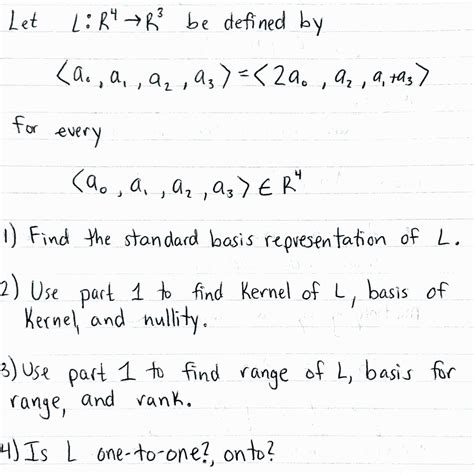 Let L: R⁴ → R³ be defined by
<a₀, a₁, a₂, a₃> = <2a₀, a₂, a₁+a₃>
for every
<a₀, a₁, a₂, a₃> ∈ R⁴
1) Find the standard basis representation of L.
2) Use part 1 to find Kernel of L, basis of
Kernel, and nullity.
3) Use part 1 to find range of L, basis for
range, and rank.
4) Is L one-to-one?, onto?